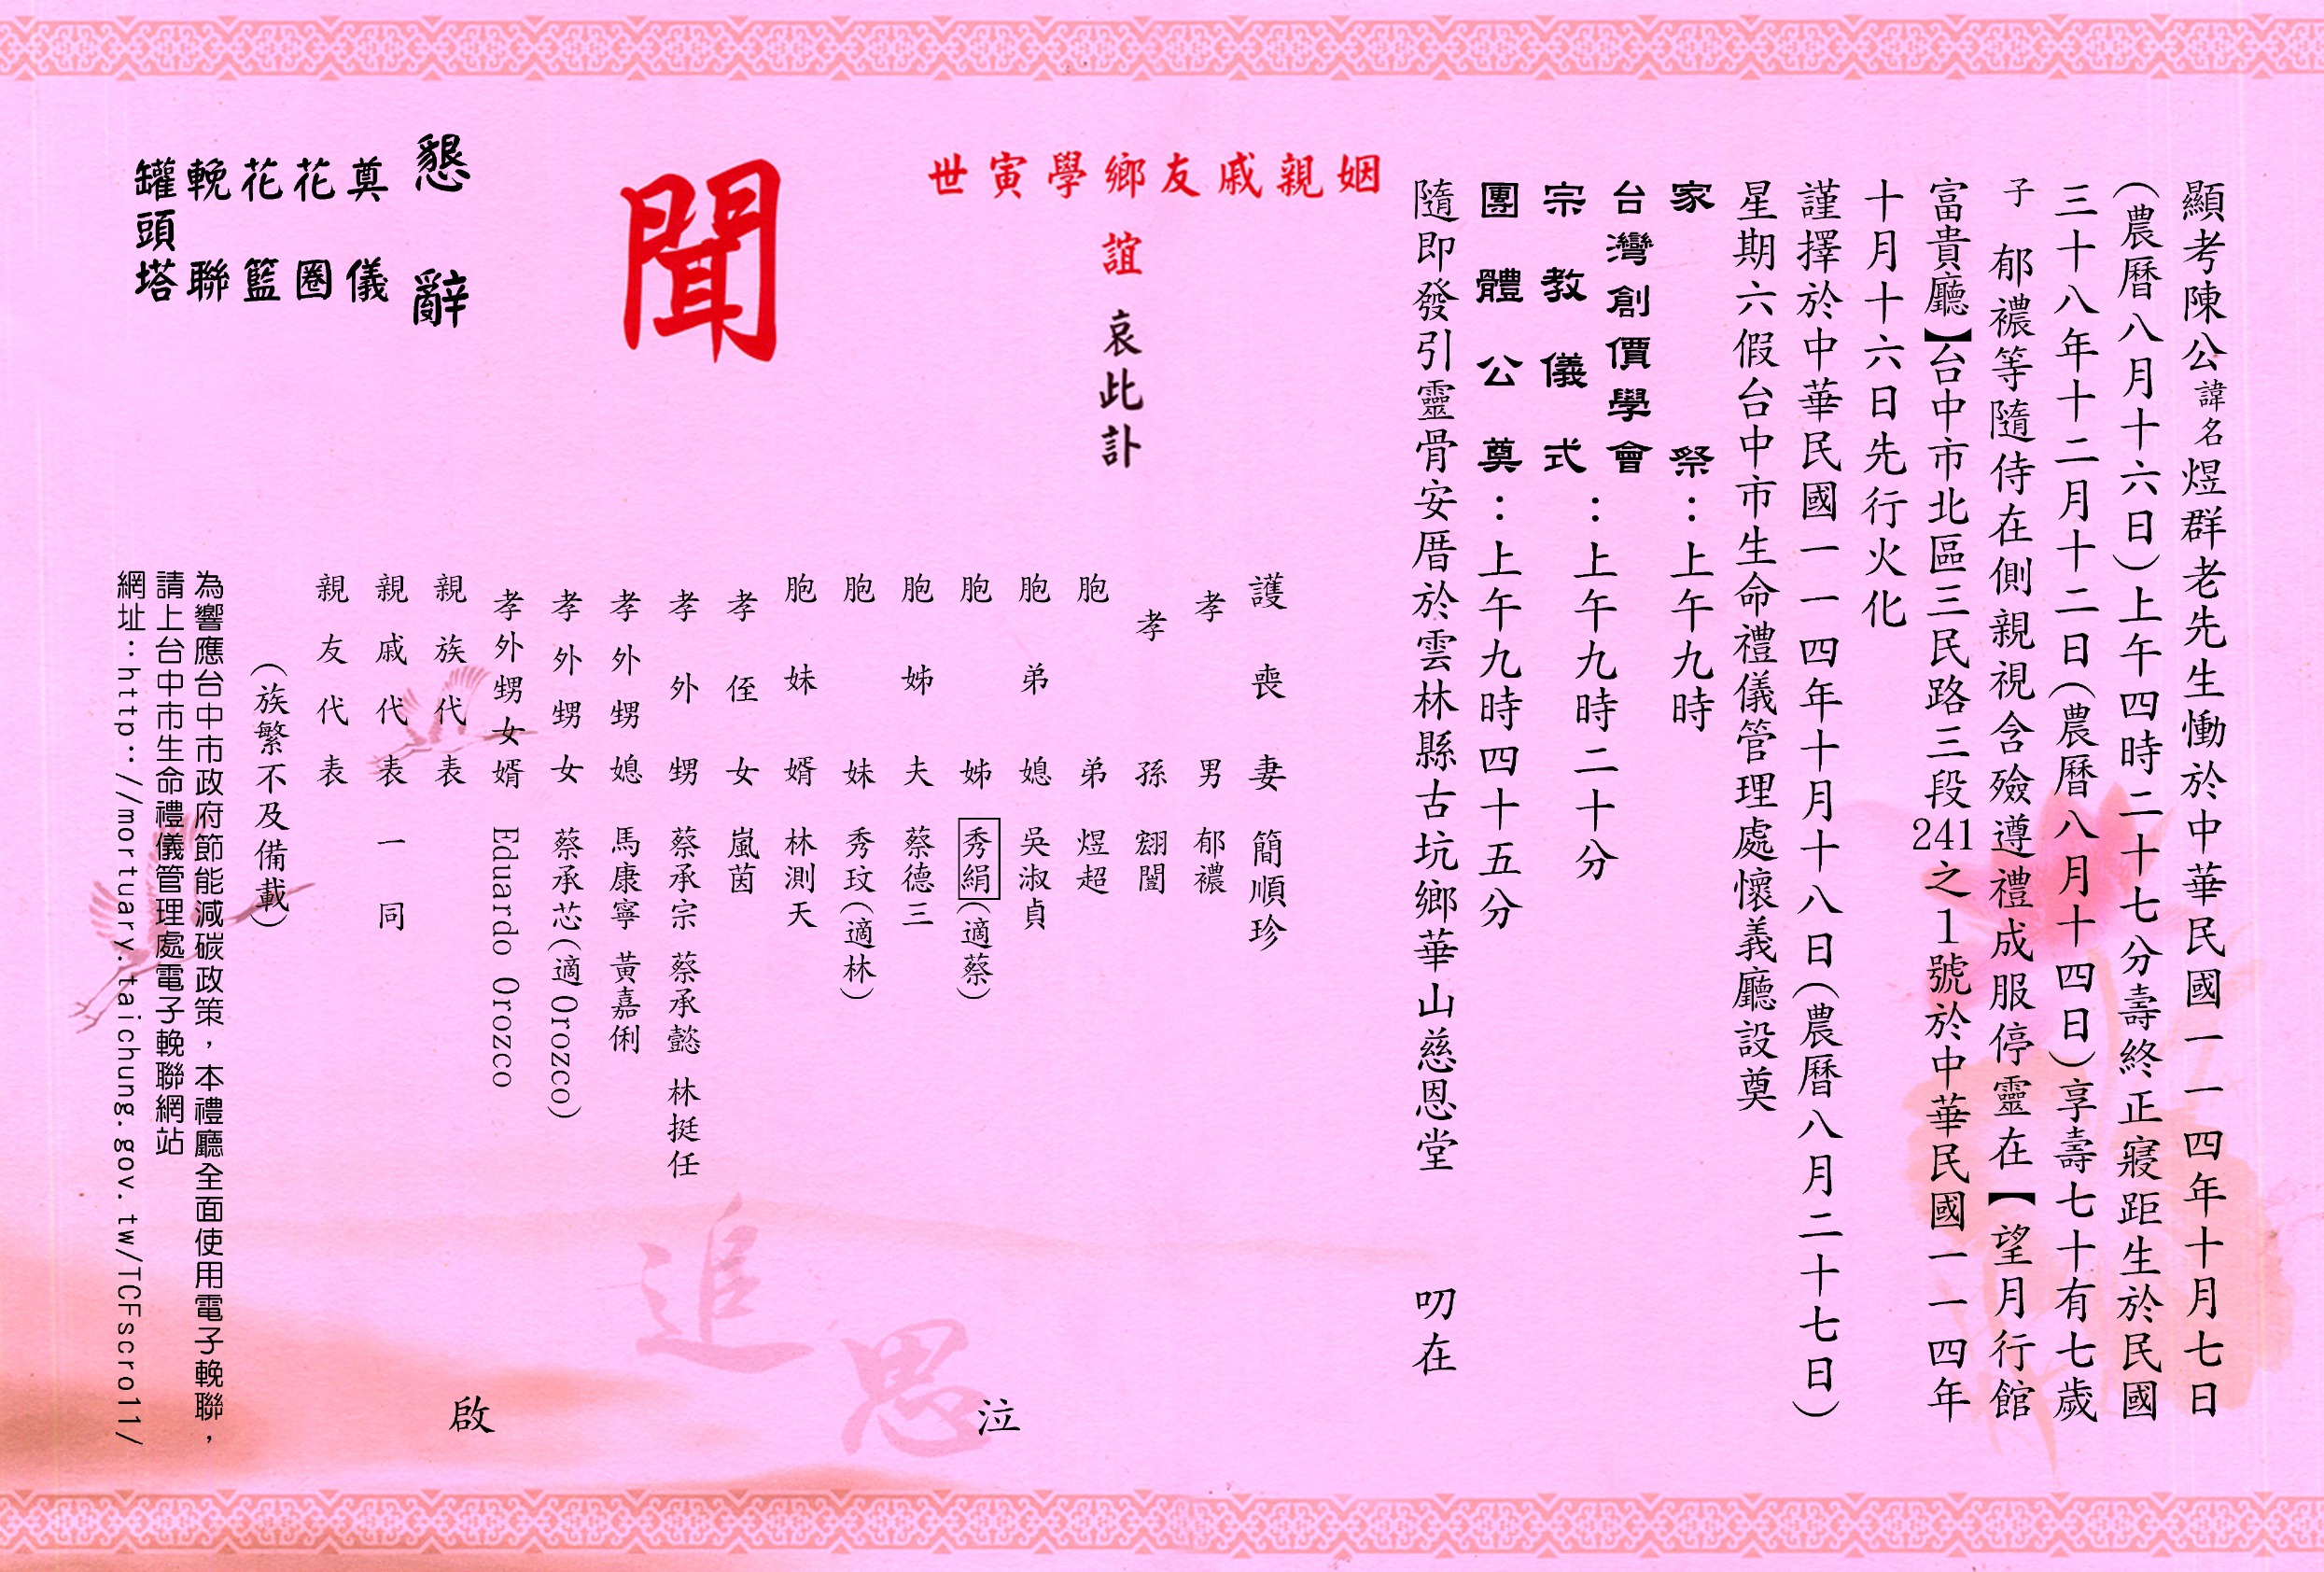 顯考陳公諱名煜群老先生慟於中華民國一一四年十月七日
(農曆八月十六日)上午四時二十七分壽終正寢距生於民國
三十八年十二月十二日(農曆八月十四日)享壽七十有七歲
子 郁襛等隨侍在側親視含殮遵禮成服停靈在【望月行館
富貴廳】台中市北區三民路三段241之1號於中華民國一一四年
十月十六日先行火化
謹擇於中華民國一一四年十月十八日(農曆八月二十七日)
星期六假台中市生命禮儀管理處懷義廳設奠
家祭：上午九時
台灣創價學會
宗教儀式：上午九時二十分
團體公奠：上午九時四十五分
隨即發引靈骨安厝於雲林縣古坑鄉華山慈恩堂 叨在
姻親戚友鄉學寅世
誼 哀此訃
聞
護喪妻 簡順珍
孝男 郁襛
孝孫 翝闓
胞弟 煜超
胞弟媳 吳淑貞
胞姊 秀絹(適蔡)
胞姊夫 蔡德三
胞妹 秀玟(適林)
胞妹婿 林測天
孝侄女 嵐茵
孝外甥 蔡承宗 蔡承懿 林挺任
孝外甥媳 馬康寧 黃嘉俐
孝外甥女 蔡承芯(適Orozco)
孝外甥女婿 Eduardo Orozco
親族代表
親戚代表 一同
親友代表
(族繁不及備載)
泣
啟
追思
懇辭
奠儀
花圈
花籃
輓聯
罐頭塔
為響應台中市政府節能減碳政策，本禮廳全面使用電子輓聯，
請上台中市生命禮儀管理處電子輓聯網站
網址：http://mortuary.taichung.gov.tw/TCFscroll/